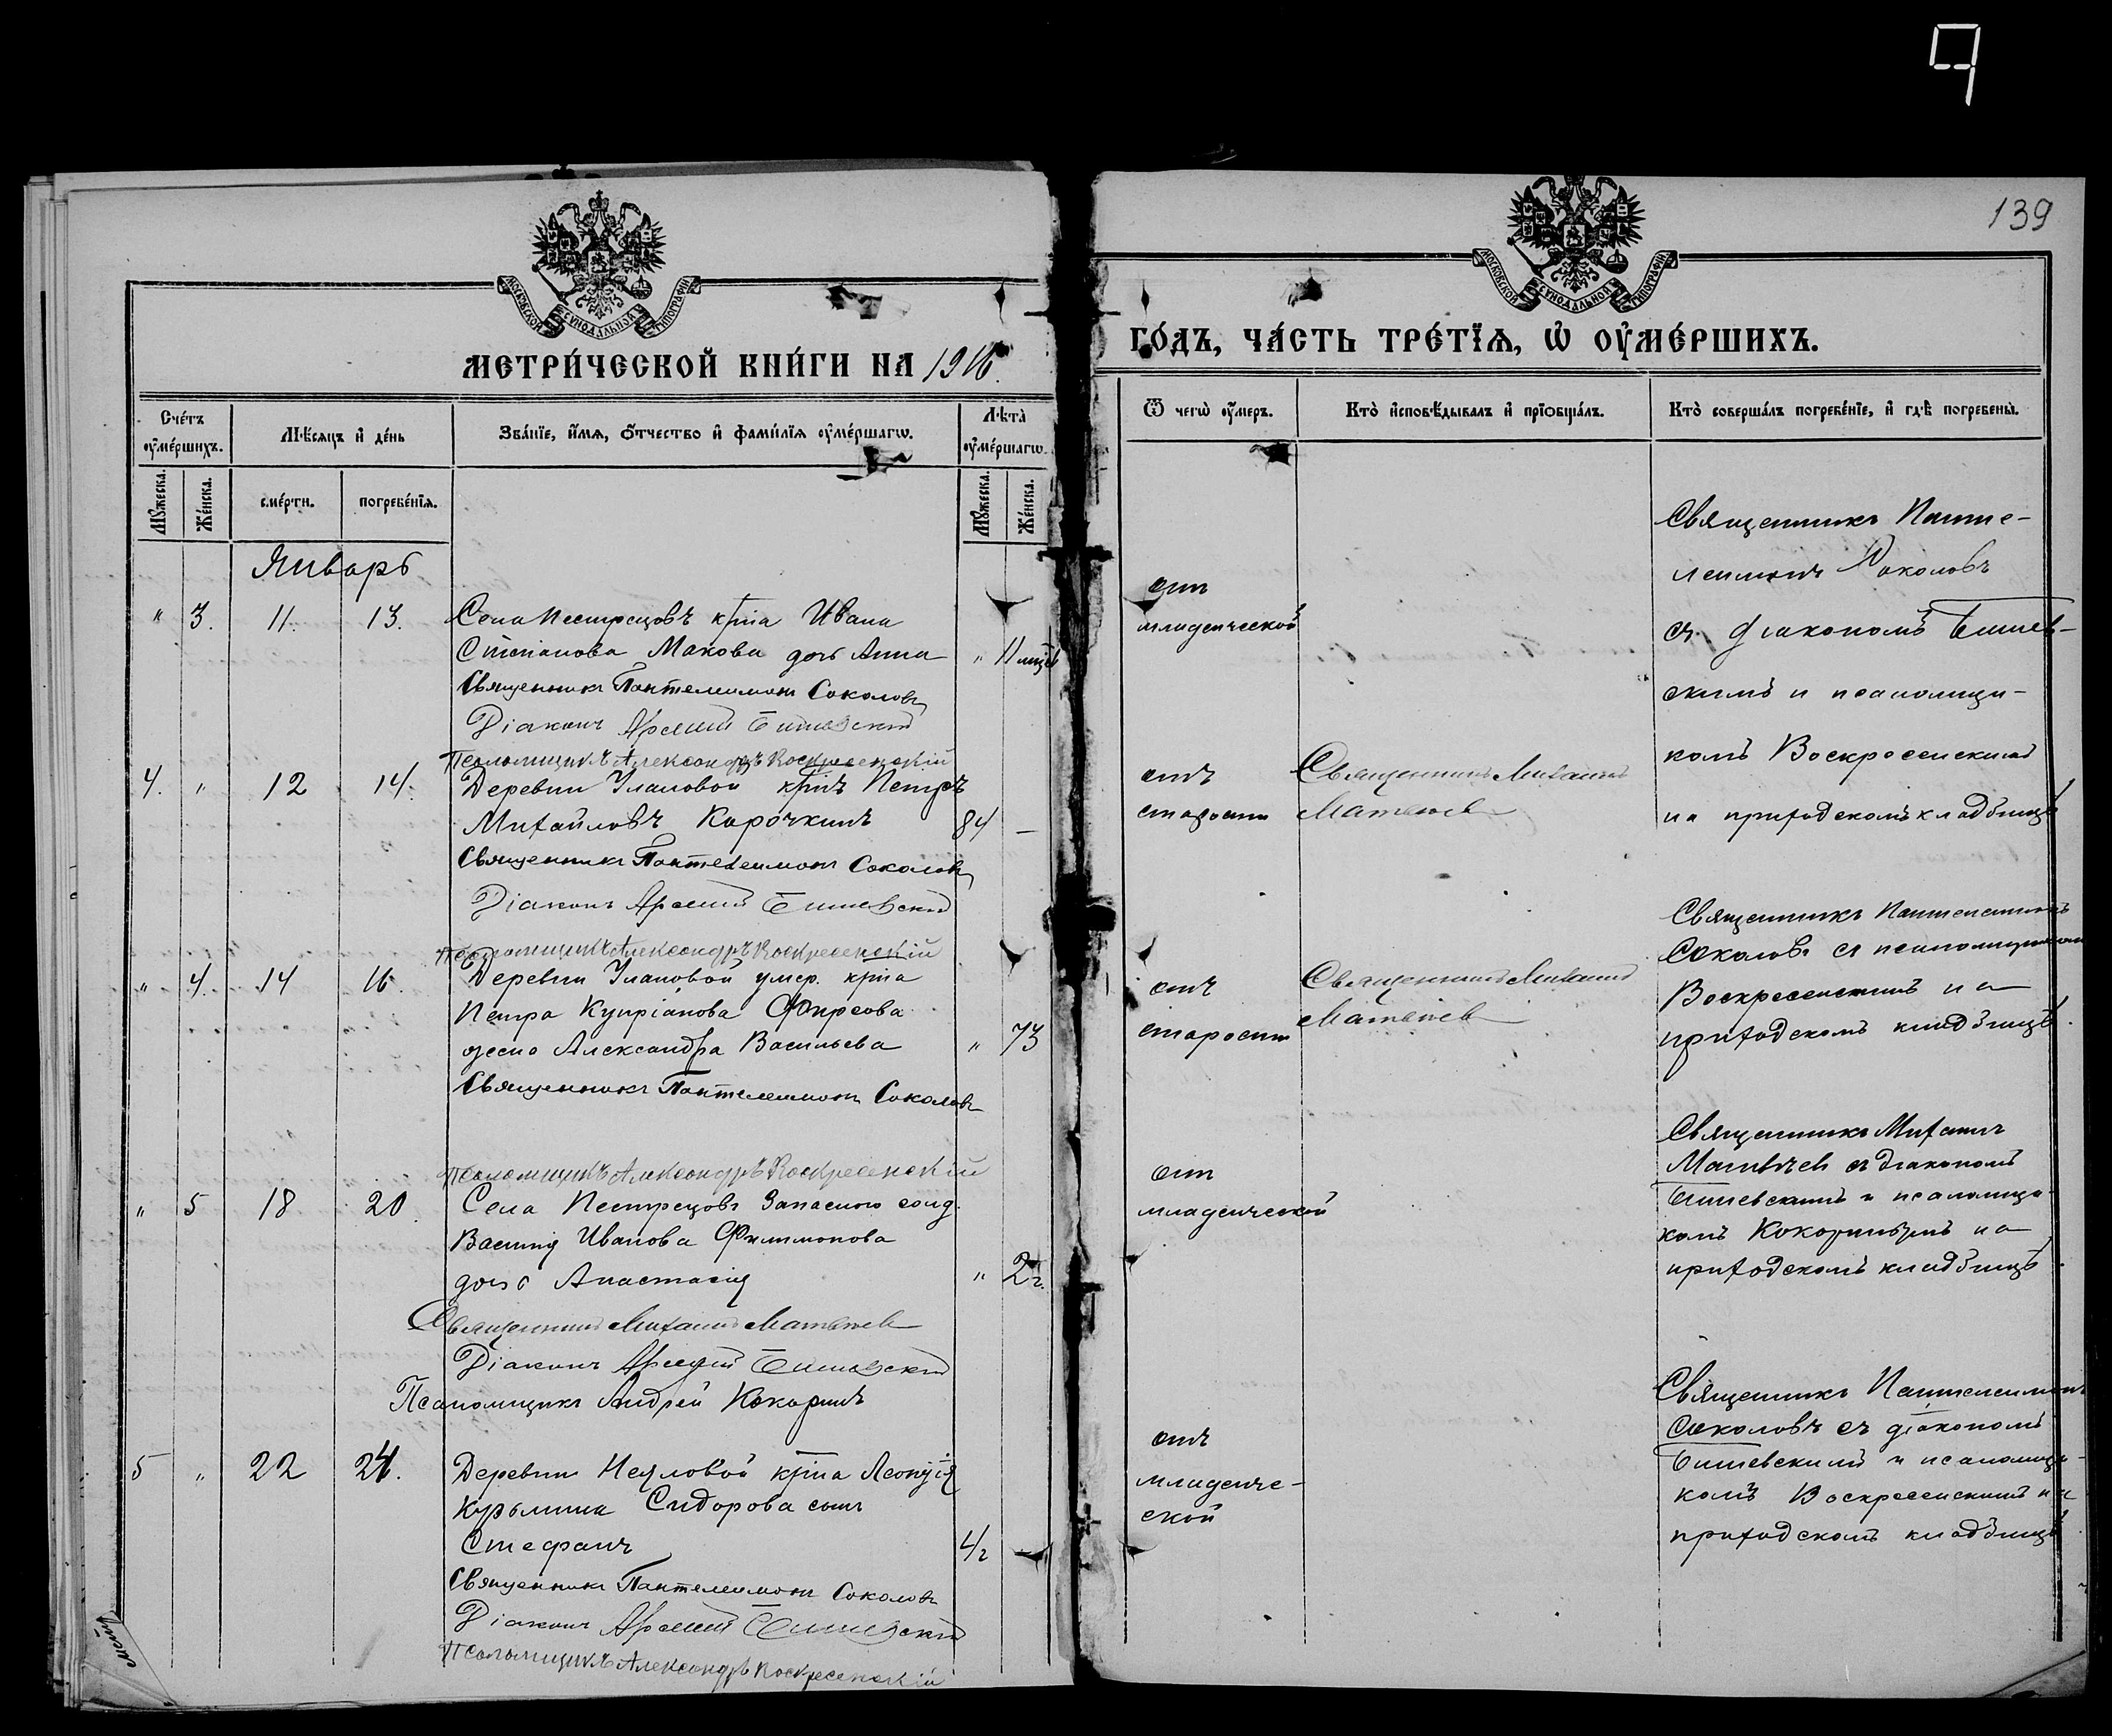 139
МОСКОВСКОЙ СУНОДАЛЬНОЙ ТИПОГРАФІИ
МОСКОВСКОЙ СУНОДАЛЬНОЙ ТИПОГРАФІИ
МЕТРИ́ЧЕСКОЙ КНИ́ГИ НА 1916.
ГО́ДЪ, ЧА́СТЬ ТРЕ́ТЇѦ, Ѡ҆ ОУ҆МЕ́РШИХЪ.
Сче́тъ оу҆ме́ршихъ.
Мѣ́сяцъ и҆ де́нь
Зва́нїе, и҆́мѧ, ѻ҆́тчество и҆ фами́лїѧ оу҆ме́ршагѡ.
Лѣта̀ оу҆ме́ршагѡ.
Мꙋ́жеска.
Же́нска.
сме́рти.
погребе́нїѧ.
Мꙋ́жеска.
Же́нска.
Ѿ чегѡ̀ оу҆́меръ.
Кто̀ и҆сповѣ́дывалъ и҆ прїѡбща́лъ.
Кто̀ соверша́лъ погребе́нїе, и҆ гдѣ̀ погребены̀.
Январь
" 3. 11. 13. Села Пестрецовъ кр̅на Ивана
Степанова Макова дочь Анна " 11 мцѣ
Священникъ Пантелеимонъ Соколовъ
Діаконъ Арсеній
Псаломщикъ Александръ Воскресенскій
отъ
младенческой
Священникъ Панте-
леимонъ Соколовъ
съ діакономъ
скимъ и псаломщи-
комъ Воскресенскимъ
на приходскомъ кладбищѣ
4. " 12 14. Деревни Улановой кр̅нъ Петръ
Михайловъ Карочкинъ 84 —
Священникъ Пантелеимонъ Соколовъ
Діаконъ Арсеній
Псаломщикъ Александръ Воскресенскій
отъ
старости
Священникъ Михаилъ
Матвѣевъ
" 4. 14 16. Деревни Улановой умер. кр̅на
Петра Купріанова Фирсова
жена Александра Васильева " 73
Священникъ Пантелеимонъ Соколовъ
Псаломщикъ Александръ Воскресенскій
отъ
старости
Священникъ Михаилъ
Матвѣевъ
Священникъ Пантелеимонъ
Соколовъ съ псаломщикомъ
Воскресенскимъ на
приходскомъ кладбищѣ.
" 5 18 20. Села Пестрецовъ Запасного солд.
Василія Иванова Филимонова
дочь Анастасія " 2 г.
Священникъ Михаилъ Матвѣевъ
Діаконъ Арсеній
Псаломщикъ Андрей Кокоринъ
отъ
младенческой
Священникъ Михаилъ
Матвѣевъ съ діакономъ
и псаломщи-
комъ Кокоринымъ на
приходскомъ кладбищѣ.
5 " 22 24. Деревни кр̅на Леонтія
Сидорова сынъ
Стефанъ 4 г —
Священникъ Пантелеимонъ Соколовъ
Діаконъ Арсеній
Псаломщикъ Александръ Воскресенскій
отъ
младенче-
ской
Священникъ Пантелеимонъ
Соколовъ съ діакономъ
и псаломщи-
комъ Воскресенскимъ на
приходскомъ кладбищѣ